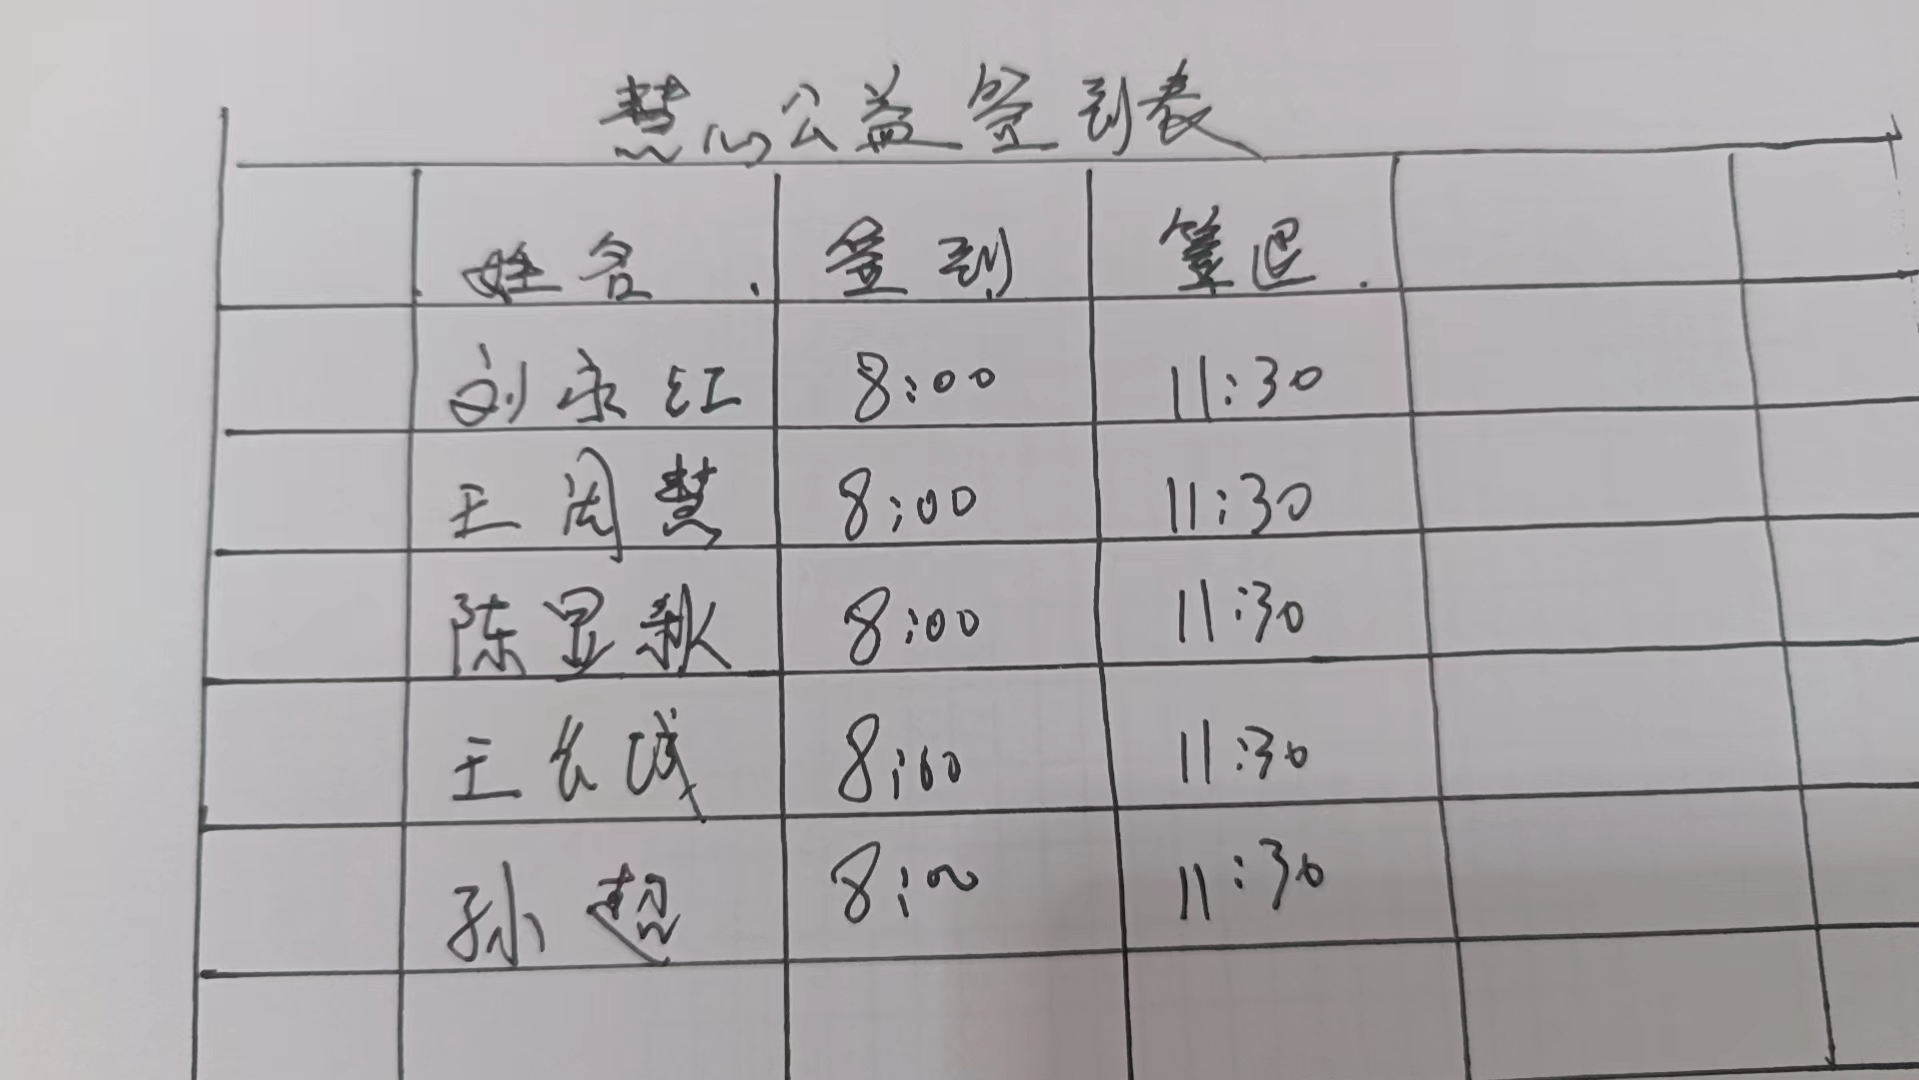 慧心公益签到表
姓名 签到 签退
刘永红 8:00 11:30
王闵慧 8:00 11:30
陈显秋 8:00 11:30
王长城 8:00 11:30
孙超 8:00 11:30